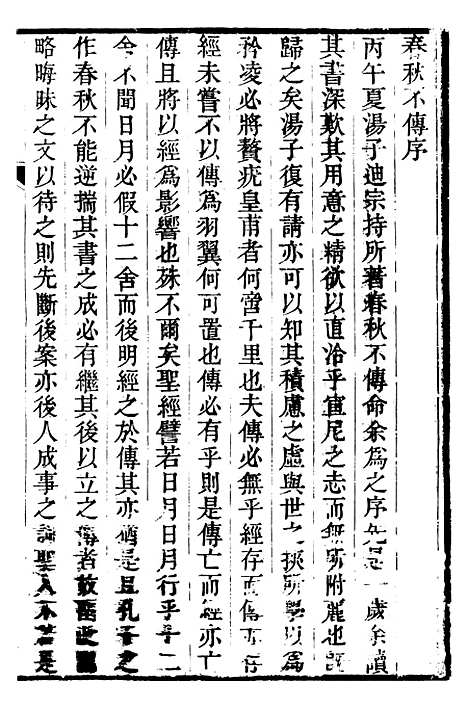 春秋不傳序
丙午夏湯子迪宗持所著春秋不傳命余為之序先是一歲余讀
其書深歎其用意之精欲以直洽乎宣尼之志而無所附麗也既
歸之矣湯子復有請亦可以知其積慮之虛與世之挾所學以為
矜凌必將贅疣皇甫者何啻千里也夫傳必無乎經存而傳亦存
經未嘗不以傳為羽翼何可置也傳必有乎則是傳亡而經亦亡
傳且將以經為影響也殊不爾矣聖經譬若日月日月行乎十二
舍不聞日月必假十二舍而後明經之於傳其亦猶是且孔子之
作春秋不能逆揣其書之成必有繼其後以立之傳者故
略晦昧之文以待之則先斷後案亦後人成事之論聖人不若是